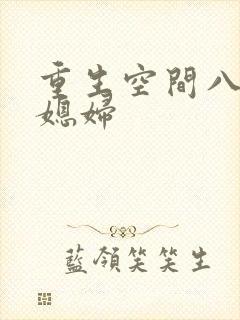 重生空間八
媳婦
藍領笑笑生